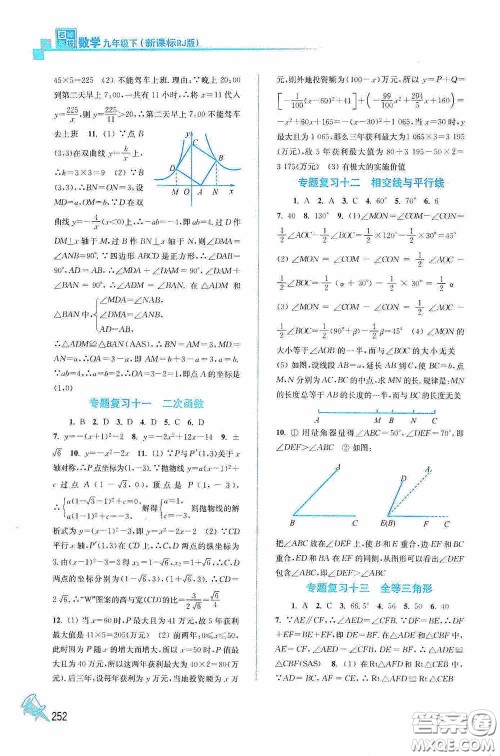 数学 九年级下(新课标RJ版)
45×5=225 (2)不能驾车上班. 理由:∵晚上20:00
到第二天早上7:00,一共有11小时,∴将x=11代入
y=225/x,则y=225/11>20,∴第二天早上7:00不能驾车
去上班 11. (1)∵点B
(3,3)在双曲线y=k/x上,
∴k=3×3=9 (2)∵B
(3,3),∴BN=ON=3,设
MD=a,OM=b,∵D在双
曲线y=-4/x(x<0)上,∴-ab=-4,即ab=4,过D作
DM⊥x轴于M,过B作BN⊥x轴于N,则∠DMA=
∠ANB=90°. ∵四边形ABCD是正方形,∴∠DAB=
90°,AD=AB,∴∠MDA+∠DAM=90°,∠DAM+
∠BAN=90°,∴∠MDA=∠BAN. 在△ADM和
△BAN中,{∠MDA=∠NAB,
∠DMA=∠ANB,
AD=AB,
∴△ADM≌△BAN(AAS),∴BN=AM=3,MD=
AN=a,∴OA=3-a,即AM=b+3-a=3,a=b.
∵ab=4,∴a=b=2,∴OA=3-2=1,即点A的坐标是
(1,0)
专题复习十一 二次函数
1. B 2. D 3. D 4. D 5. C 6. D
7. y=-(x+1)²-2 8. y=-2x²+12x-14 9. ±
√6 10. y=-x²-2x 11. (1)∵P与P′(1,3)关于x
轴对称,∴P点坐标为(1,-3). ∵抛物线y=a(x-1)²+c
过点A(1-√3,0),顶点是P(1,-3),
∴{a(1-√3-1)²+c=0, a(1-1)²+c=-3. 解得{a=1, c=-3. 则抛物线的解
析式为y=(x-1)²-3,即y=x²-2x-2 (2)∵CD
平行x轴,P′(1,3)在CD上,∴C、D两点的纵坐标为
3,由(x-1)²-3=3,得x₁=1-√6,x₂=1+√6,∴C、D
两点的坐标分别为(1-√6,3),(1+√6,3),∴CD=
2√6,∴“W”图案的高与宽(CD)的比=3/2√6=√6/4
12. (1)当x=60时,P最大且为41万元,故5年获利
最大值是41×5=205(万元) (2)前两年,0≤x≤50,
此时因为P随x的增大而增大,所以x=50时,P值最大
且为40万元,所以这两年获利最大为40×2=80(万
元). 后三年,设每年获利为y万元,当地投资额为x万
元,则外地投资额为(100-x)万元,所以y=P+Q=
[-1/100(x-60)²+41]+(-99/100x²+294/5x+160)=
-x²+60x+165=-(x-30)²+1065,当x=30时,y
最大且为1 065,那么三年获利最大为1 065×3=3 195
(万元),故5年获利最大值为80+3 195-50×2=
3 175(万元) (3)有极大的实施价值
专题复习十二 相交线与平行线
1. A 2. A 3. C 4. 65° 5. 70° 6. 6
7. 40 8. 130° 9. (1)∠MON=∠COM-∠CON=
1/2∠AOC-1/2∠BOC=1/2×120°-1/2×30°=45°
(2)∠MON=∠COM-∠CON=1/2∠AOC-
1/2∠BOC=1/2(α+30°)-1/2×30°=1/2α
(3)∠MON=∠COM-∠CON=1/2∠AOC-
1/2∠BOC=1/2(90°+β)-1/2β=45° (4)∠MON的
大小等于∠AOB的一半,而与∠BOC的大小无关
(5)如图,设线段AB=a,延长AB到C,使BC=b,点
M,N分别为AC,BC的中点,求MN的长. 规律是:
MN的长度总等于AB的长度的一半,而与BC的长度无关
A M B N C
10. ①用量角器量得∠ABC=50°,∠DEF=70°,即
∠DEF>∠ABC ②如图:
把∠ABC放在∠DEF上,使B和E重合,边EF和BC
重合,DE和BA在EF的同侧,从图形可以看出∠DEF
包含∠ABC,即∠DEF>∠ABC
专题复习十三 全等三角形
1. A 2. C 3. 66.5° 4. 56 5. 50 6. 40
7. ∵AB∥CD,∴∠AEB=∠DFC. ∵BF=DE,∴BF+
252